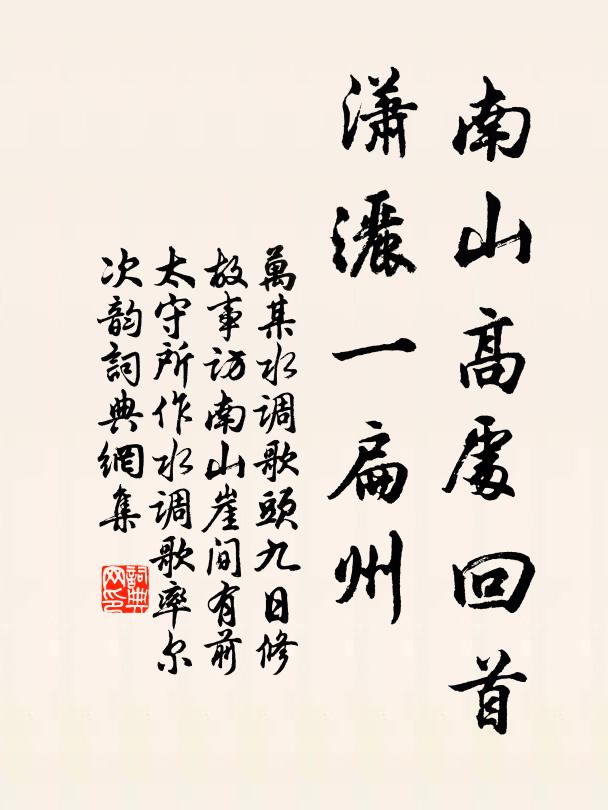 南山高處回首
瀟灑一扁州
萬某水调歌頭九日修
故事访南山崖间有前
太守所作水调歌率尔
次韵詞典網集
詞典网印